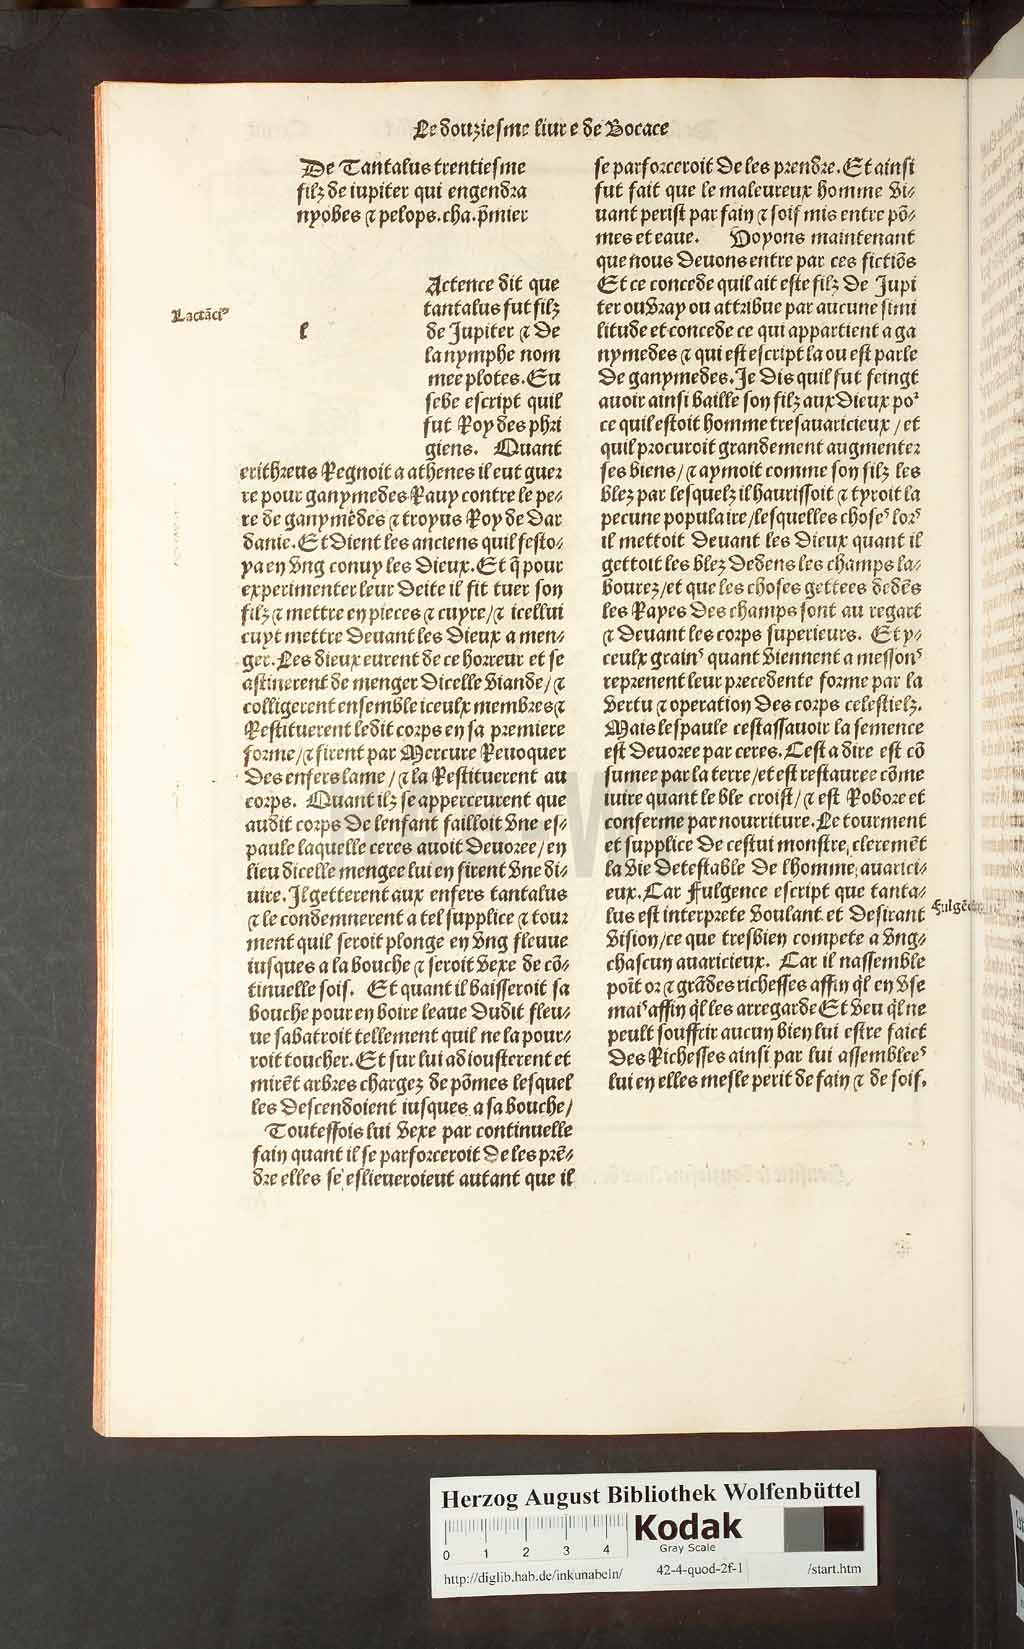 Le douziesme liure de Bocace
De Tantalus trentiesme
filz de iupiter qui engendra
nyobes ⁊ pelops. cha. p̃mier
Lactãci⁹
l
Actence dit que
tantalus fut filz
de Jupiter ⁊ de
la nymphe nom
mee plotes. Eu
sebe escript quil
fut Roy des phri
giens. Quant
erithreus Regnoit a athenes il eut guer
re pour ganymedes Rauy contre le pe⸗
re de ganymedes ⁊ troyus Roy de Dar
danie. Et dient les anciens quil festo⸗
ya en vng conuy les dieux. Et q̃ pour
experimenter leur deite il fit tuer son
filz ⁊ mettre en pieces ⁊ cuyre/ ⁊ icellui
cuyt mettre deuant les dieux a men⸗
ger. Les dieux eurent de ce horreur et se
astinerent de menger dicelle viande/ ⁊
colligerent ensemble iceulx membres ⁊
Restituerent ledit corps en sa premiere
forme/ ⁊ firent par Mercure Reuoquer
des enfers lame/ ⁊ la Restituerent au
corps. Quant ilz se apperceurent que
audit corps de lenfant failloit vne es⸗
paule laquelle ceres auoit deuoree/ en
lieu dicelle mengee lui en firent vne di⸗
uire. Il getterent aux enfers tantalus
⁊ le condemnerent a tel supplice ⁊ tour
ment quil seroit plonge en vng fleuue
iusques a la bouche ⁊ seroit vexe de cõ⸗
tinuelle soif. Et quant il baisseroit sa
bouche pour en boire leaue dudit fleu⸗
ue sabatroit tellement quil ne la pour⸗
roit toucher. Et sur lui adiousterent et
mirẽt arbres chargez de põmes lesquel
les descendoient iusques a sa bouche/
Toutesfois lui vexe par continuelle
fain quant il se parforceroit de les prẽ⸗
dre elles se eslieueroient autant que il
se parforceroit de les prendre. Et ainsi
fut fait que le maleureux homme vi⸗
uant perist par fain ⁊ soif mis entre põ⸗
mes et eaue. Voyons maintenant
que nous deuons entre par ces fictiõs
Et ce concede quil ait este filz de Jupi
ter ou vray ou attribue par aucune simi
litude et concede ce qui appartient a ga
nymedes ⁊ qui est escript la ou est parle
de ganymedes. Je dis quil fut feingt
auoir ainsi baille son filz aux dieux po²
ce quil estoit homme tresauaricieux/ et
quil procuroit grandement augmenter
ses biens/ ⁊ aymoit comme son filz les
blez par lesquelz il haurissoit ⁊ tyroit la
pecune populaire/ lesquelles choseˢ lorˢ
il mettoit deuant les dieux quant il
gettoit les blez dedens les champs la⸗
bourez/ et que les choses gettees dedẽs
les Rayes des champs sont au regart
⁊ deuant les corps superieurs. Et y⸗
ceulx grainˢ quant viennent a messonˢ
reprenent leur precedente forme par la
vertu ⁊ operation des corps celestielz.
Mais lespaule cestassauoir la semence
est deuoree par ceres. Cest a dire est cõ
sumee par la terre/ et est restauree cõme
iuire quant le ble croist/ ⁊ est Robore et
conferme par nourriture. Le tourment
et supplice de cestui monstre clerement
la vie detestable de lhomme auarici⸗
eux. Car Fulgence escript que tanta⸗
lus est interprete voulant et desirant
vision/ ce que tresbien compete a vng⸗
chascun auaricieux. Car il nassemble
poĩt or ⁊ grãdes richesses affin q̃l en vse
maiˢ affin q̃l les arregarde Et veu q̃l ne
peult souffrir aucun bien lui estre faict
des Richesses ainsi par lui assembleeˢ
lui en elles mesle perit de fain ⁊ de soif.
Herzog August Bibliothek Wolfenbüttel
0 1 2 3 4
Kodak
Gray Scale
http://diglib.hab.de/inkunabeln/ 42-4-quod-2f-1 /start.htm